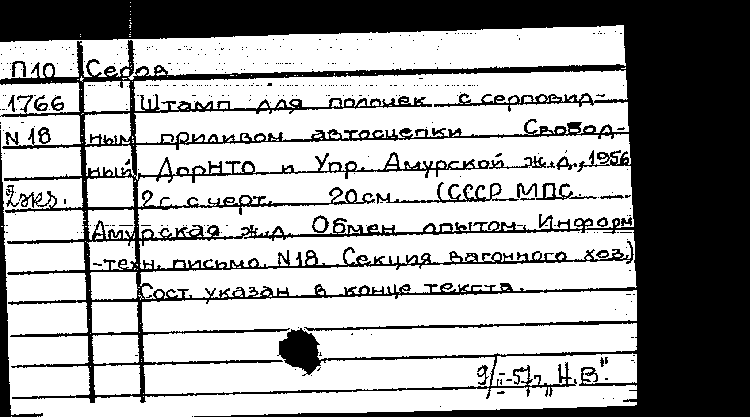 П10 Серов
1766 Штамп для полочек с серповид-
N18 ным приливом автосцепки Свобод-
ный, ДорНТО и Упр. Амурской ж.д., 1956
2экз. 2с. с черт. 20см. (СССР МПС.
Амурская ж.д. Обмен опытом. Информ
-техн. письмо. N18. Секция вагонного хоз.)
Сост. указан в конце текста.
9/II-57г. „Н.В“.